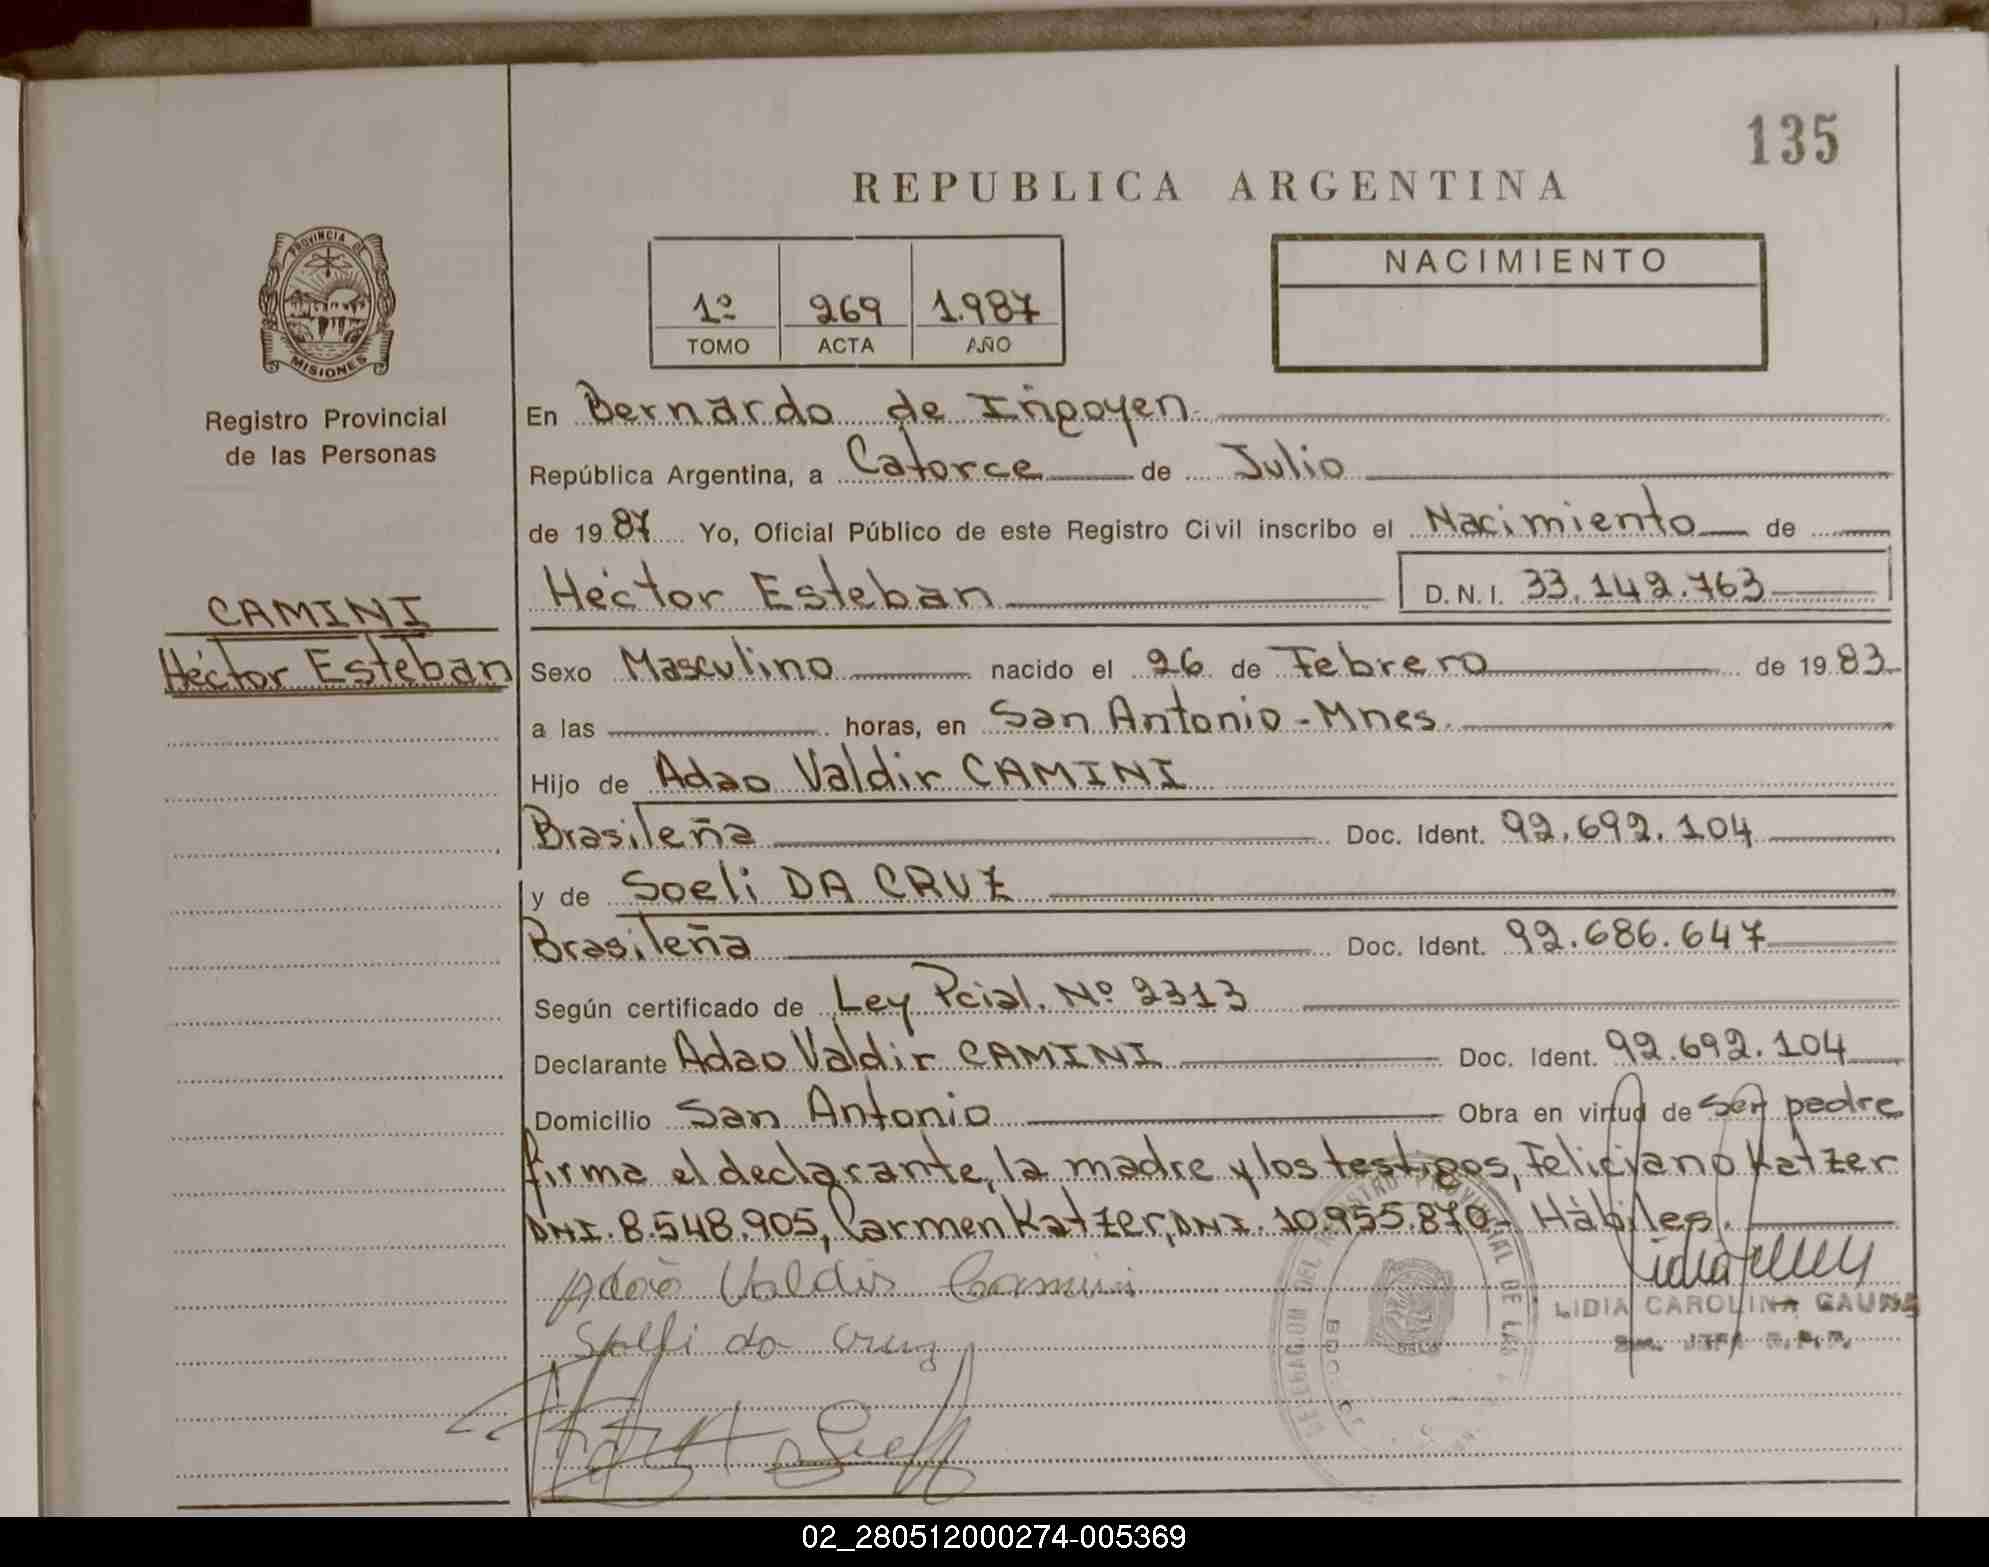 135
REPUBLICA ARGENTINA
PROVINCIA DE
MISIONES
Registro Provincial
de las Personas
1º 269 1.987
TOMO ACTA AÑO
NACIMIENTO
En Bernardo de Irigoyen
República Argentina, a Catorce de Julio
de 1987 Yo, Oficial Público de este Registro Civil inscribo el Nacimiento de
Héctor Esteban D.N.I. 33.142.763
CAMINI
Héctor Esteban
Sexo Masculino nacido el 26 de Febrero de 1983
a las horas, en San Antonio - Mnes.
Hijo de Adao Valdir CAMINI
Brasileña Doc. Ident. 92.692.104
y de Soeli DA CRUZ
Brasileña Doc. Ident. 92.686.647
Según certificado de Ley Pcial. Nº 2313
Declarante Adao Valdir CAMINI Doc. Ident. 92.692.104
Domicilio San Antonio Obra en virtud de ser padre
firma el declarante, la madre y los testigos, Feliciano Katzer
DNI. 8.548.905, Carmen Katzer, DNI. 10.955.870- Hàbiles.
Adão Valdir Camini
da Cruz
LIDIA CAROLINA GAUNA
DELEGACION DEL REGISTRO PROVINCIAL DE LAS
02_280512000274-005369